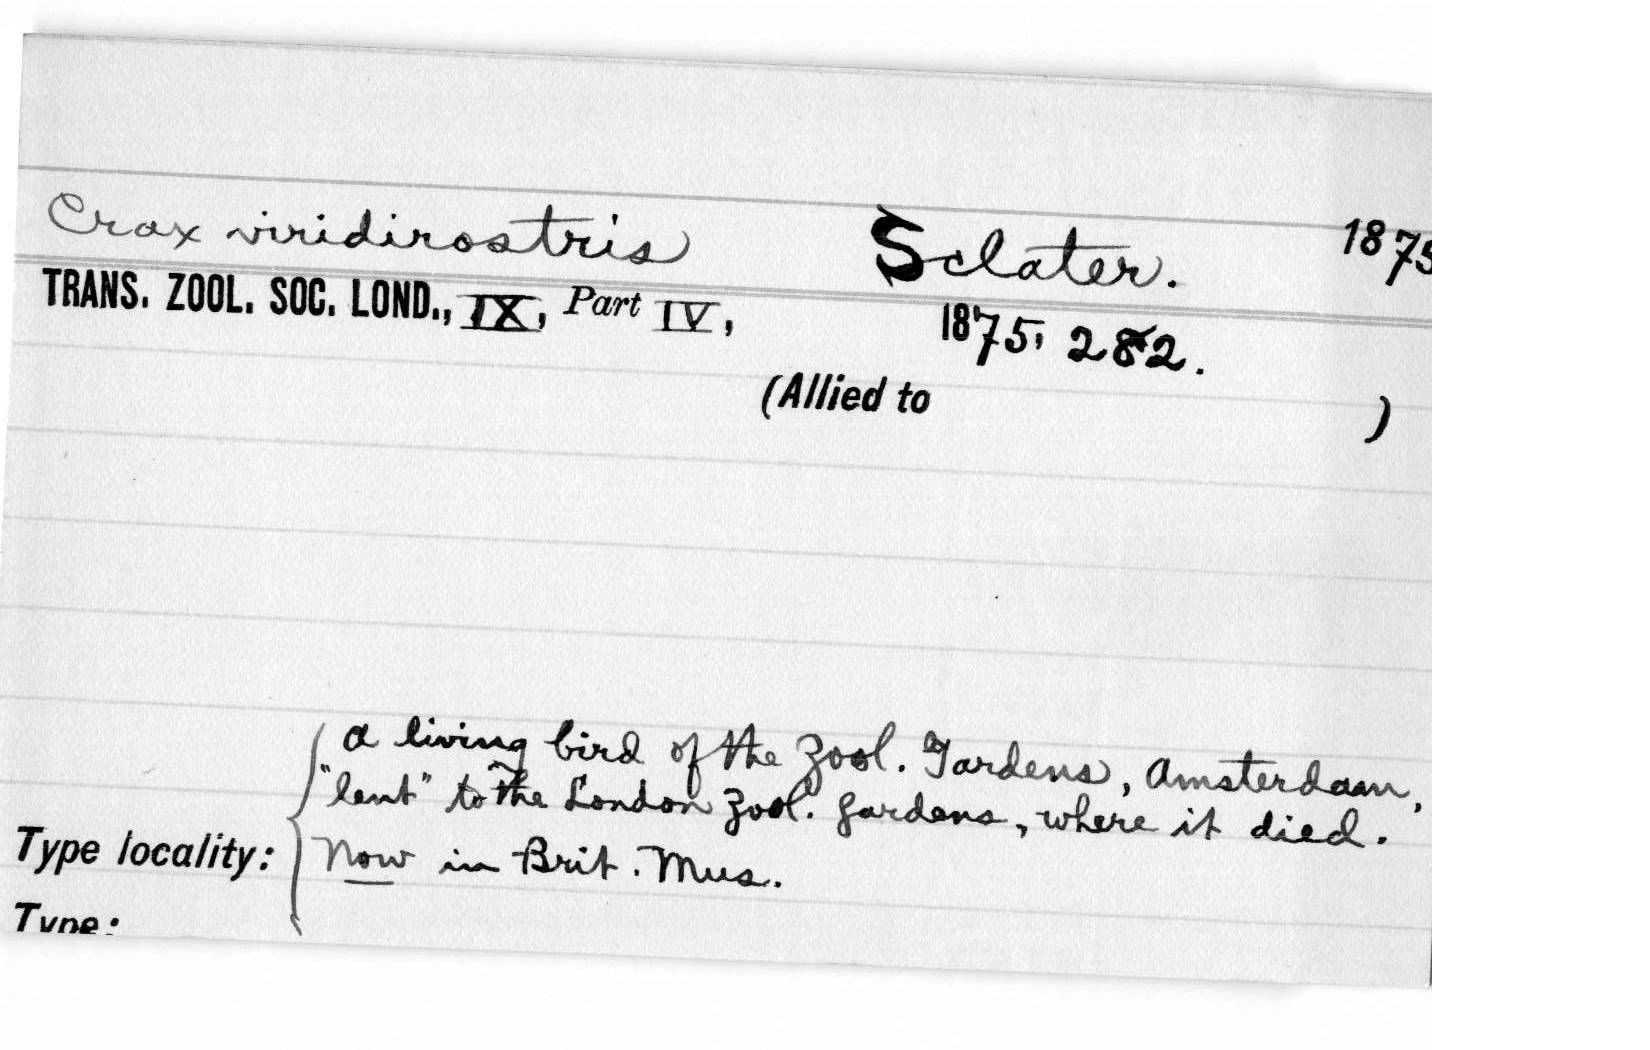 Crax viridirostris Sclater. 1875
TRANS. ZOOL. SOC. LOND., IX, Part IV, 1875, 282.
(Allied to )
a living bird of the Zool. Gardens, Amsterdam,
"lent" to the London Zool. Gardens, where it died.
Type locality: Now in Brit. Mus.
Type: